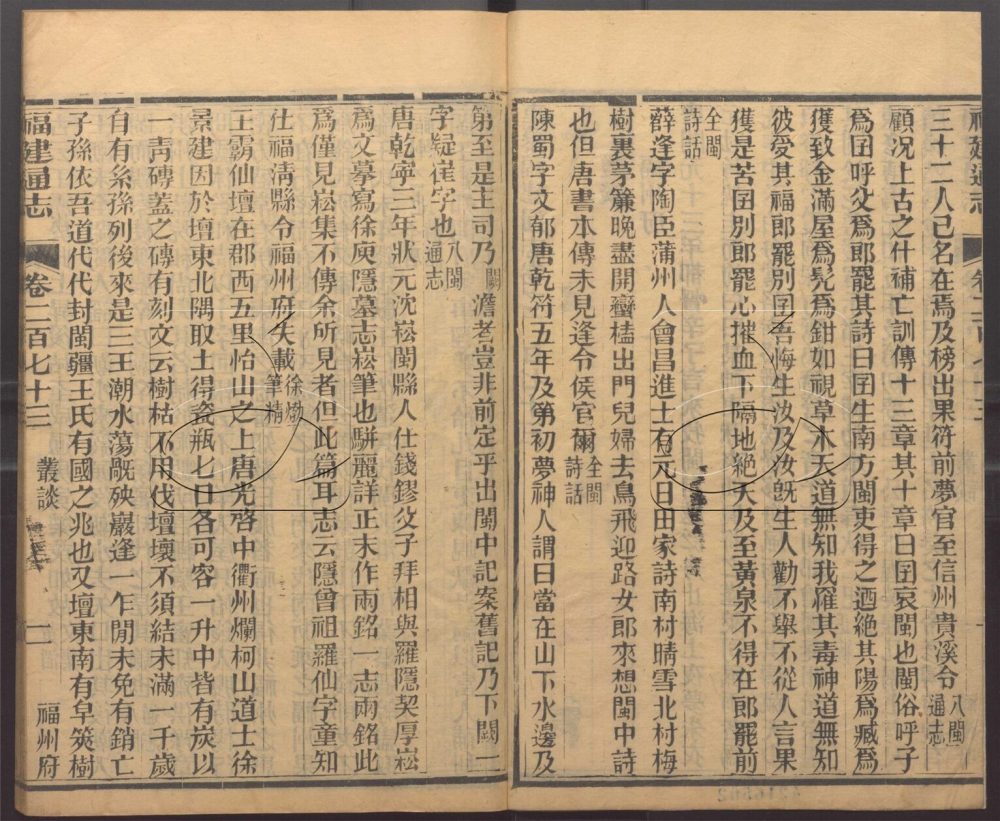 三十二人已名在焉及榜出果符前夢官至信州貴溪令八閩通志
顧況上古之什補亡訓傳十三章其十章曰囝哀閩也閩俗呼子
為囝呼父為郎罷其詩曰囝生南方閩吏得之迺絕其陽為臧為
獲致金滿屋為髠為鉗如視草木天道無知我罹其毒神道無知
彼受其福郎罷別囝吾悔生汝及汝旣生人勸不舉不從人言果
獲是苦囝別郎罷心摧血下隔地絕天及至黃泉不得在郎罷前
全閩詩話
薛逢字陶臣蒲州人會昌進士有元日田家詩南村晴雪北村梅
樹裏茅簾晚盡開蠻榼出門兒婦去鳥飛迎路女郎來想閩中詩
也但唐書本傳未見逢令侯官爾全閩詩話
陳蜀字文郁唐乾符五年及第初夢神人謂曰當在山下水邊及
第至是主司乃闕澹考豈非前定乎出閩中記案舊記乃下闕一
字疑崔字也八閩通志
唐乾寧三年狀元沈崧閩縣人仕錢鏐父子拜相與羅隱契厚崧
為文摹寫徐庾隱墓志崧筆也駢麗詳正末作兩銘一志兩銘此
為僅見崧集不傳余所見者但此篇耳志云隱曾祖羅仙字童知
仕福淸縣令福州府失載徐𤊹筆精
王霸仙壇在郡西五里怡山之上唐光啓中衢州爛柯山道士徐
景建因於壇東北隅取土得瓷瓶七口各可容一升中皆有炭以
一靑磚蓋之磚有刻文云樹枯不用伐壇壞不須結未滿一千歲
自有系孫列後來是三王潮水蕩厰殃巖逢一乍閒未免有銷亡
子孫依吾道代代封閩疆王氏有國之兆也又壇東南有皁莢樹
福建通志 卷二百七十三 叢談 二 福州府